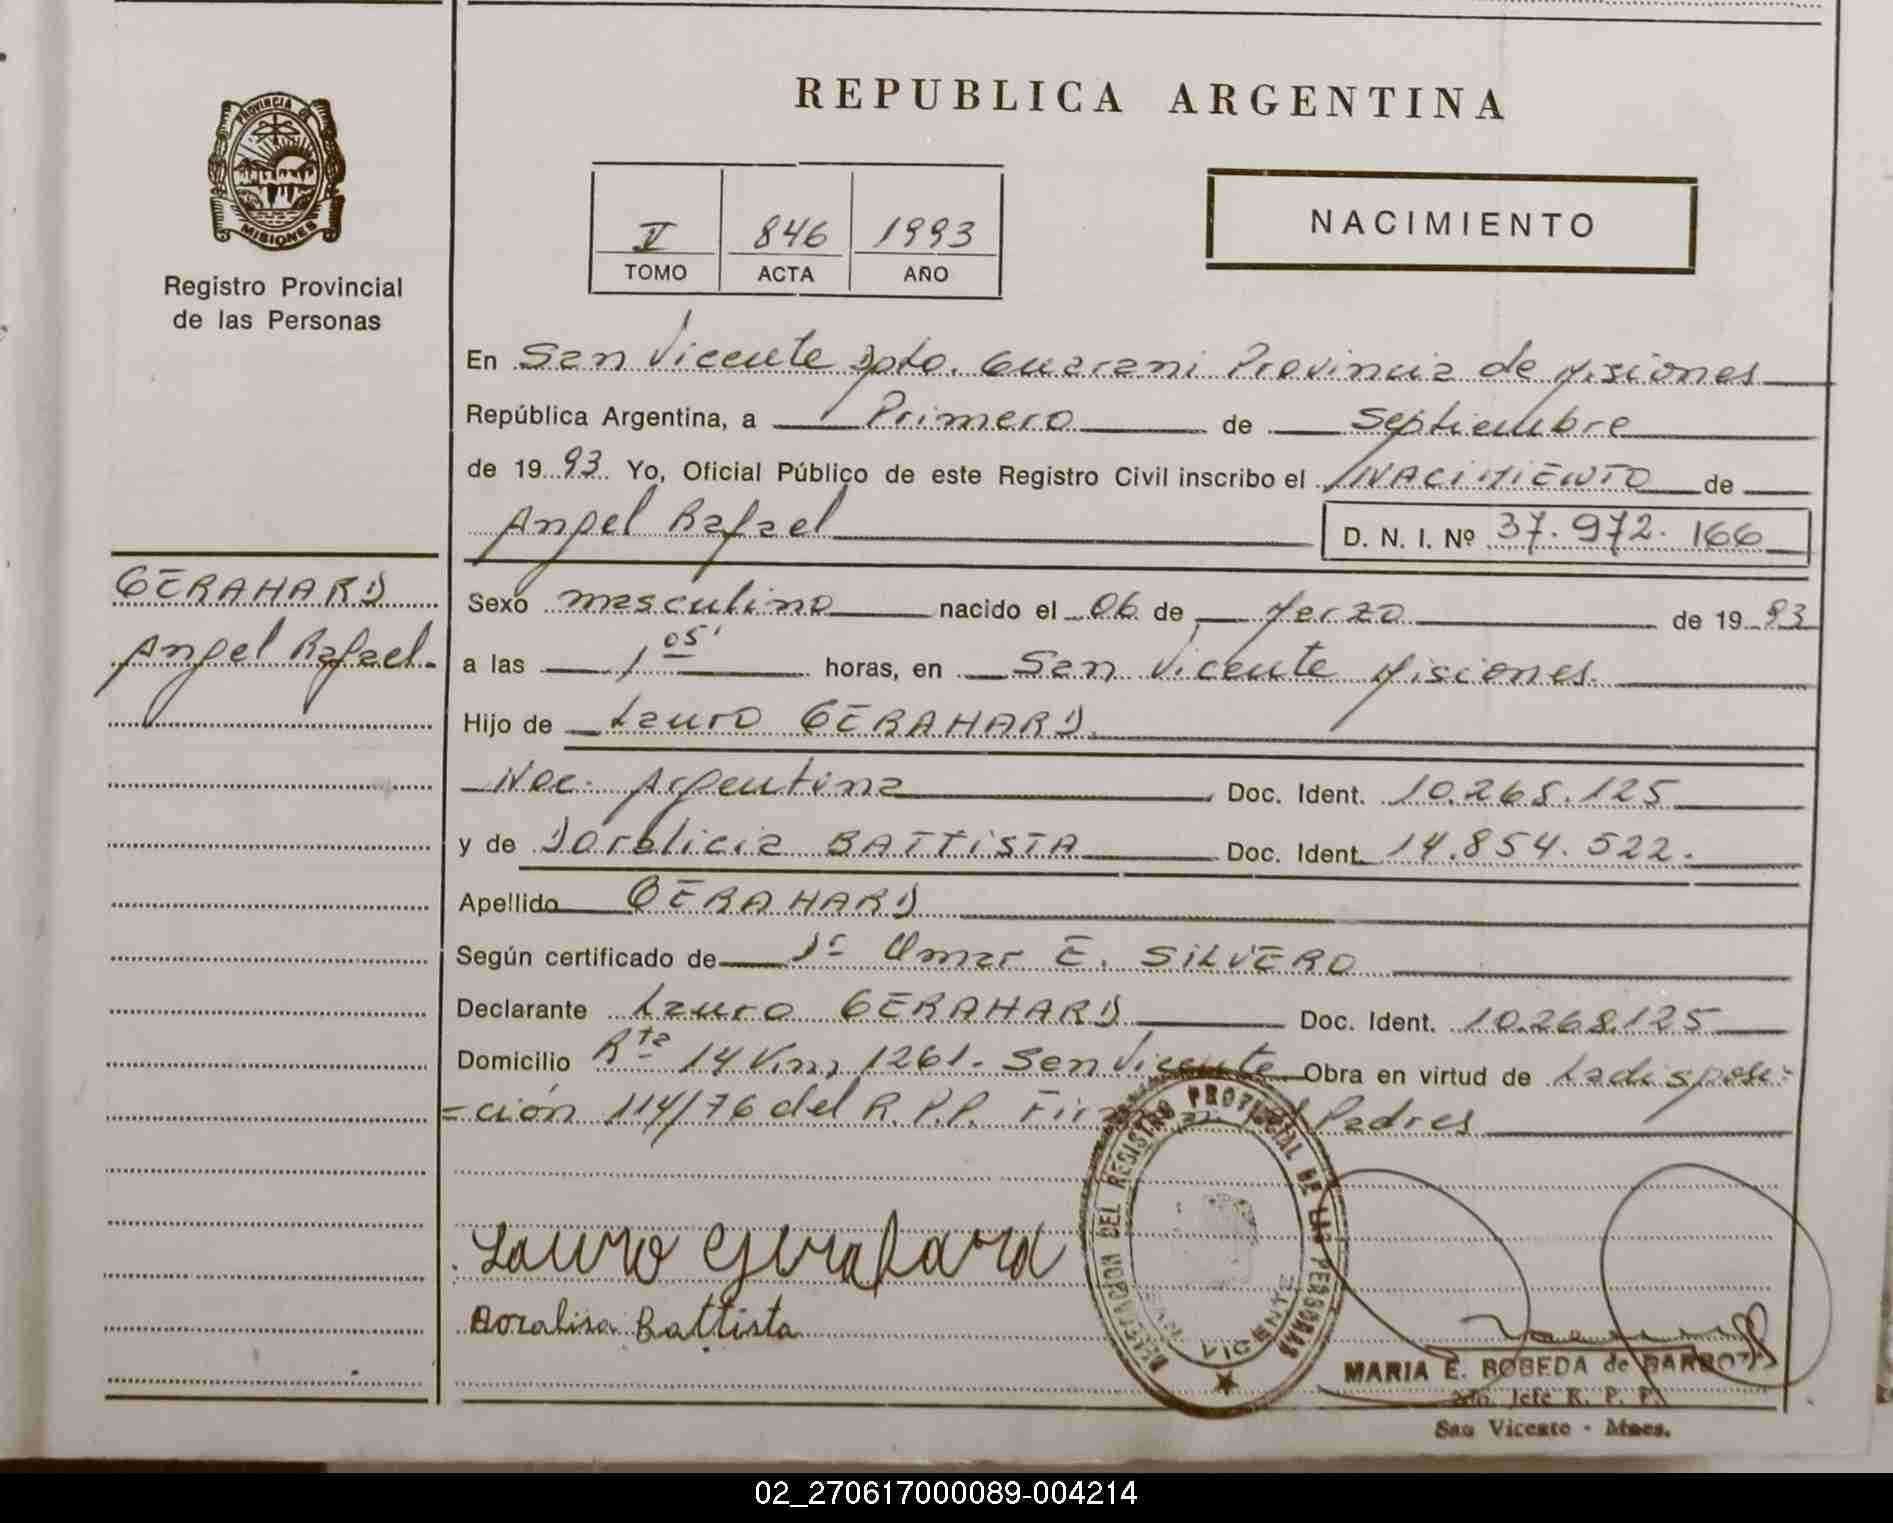 REPUBLICA ARGENTINA
PROVINCIA DE
MISIONES
Registro Provincial
de las Personas
V 846 1993
TOMO ACTA AÑO
NACIMIENTO
En San Vicente Dpto. Guarani Provincia de Misiones
República Argentina, a Primero de Septiembre
de 1993 Yo, Oficial Público de este Registro Civil inscribo el NACIMIENTO de
Angel Rafael D. N. I. Nº 37.972.166
GERAHARD
Angel Rafael
Sexo masculino nacido el 06 de Marzo de 1993
a las 1 05' horas, en San Vicente Misiones
Hijo de Lauro GERAHARD
Nac. Argentina Doc. Ident. 10.268.125
y de Doralicia BATTISTA Doc. Ident. 14.854.522.
Apellido GERAHARD
Según certificado de Dr Omar E. SILVERO
Declarante Lauro GERAHARD Doc. Ident. 10.268.125
Domicilio Rta 14 Km 1261. San Vicente Obra en virtud de La disposi-
=ción 114/76 del R.P.P. Padres
DELEGACION DEL REGISTRO PROVINCIAL DE LAS PERSONAS
VICENTE
Lauro Gerahard
Doralisa Battista
MARIA E. BOBEDA de BARBOZA
Jefe R. P. P.
San Vicente - Mnes.
02_270617000089-004214